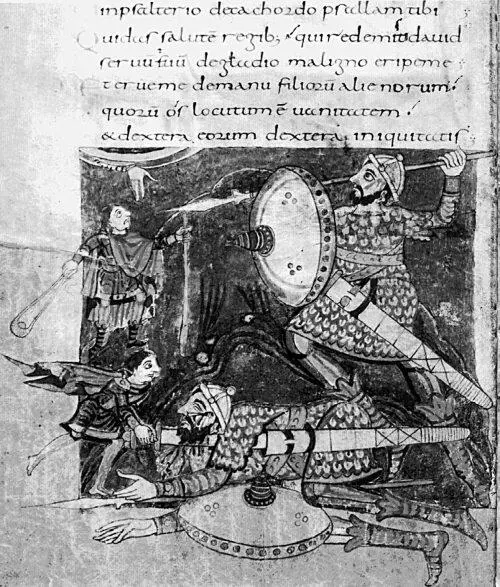 inpsalterio decachordo psallam tibi
Quidas salutē regib; quiredemisti dauid
seruū tuū degladio maligno eripeme
Eterueme demanu filiorū alienorum.
quorū os locutum ē uanitatem
&dextera eorum dextera iniquitatis